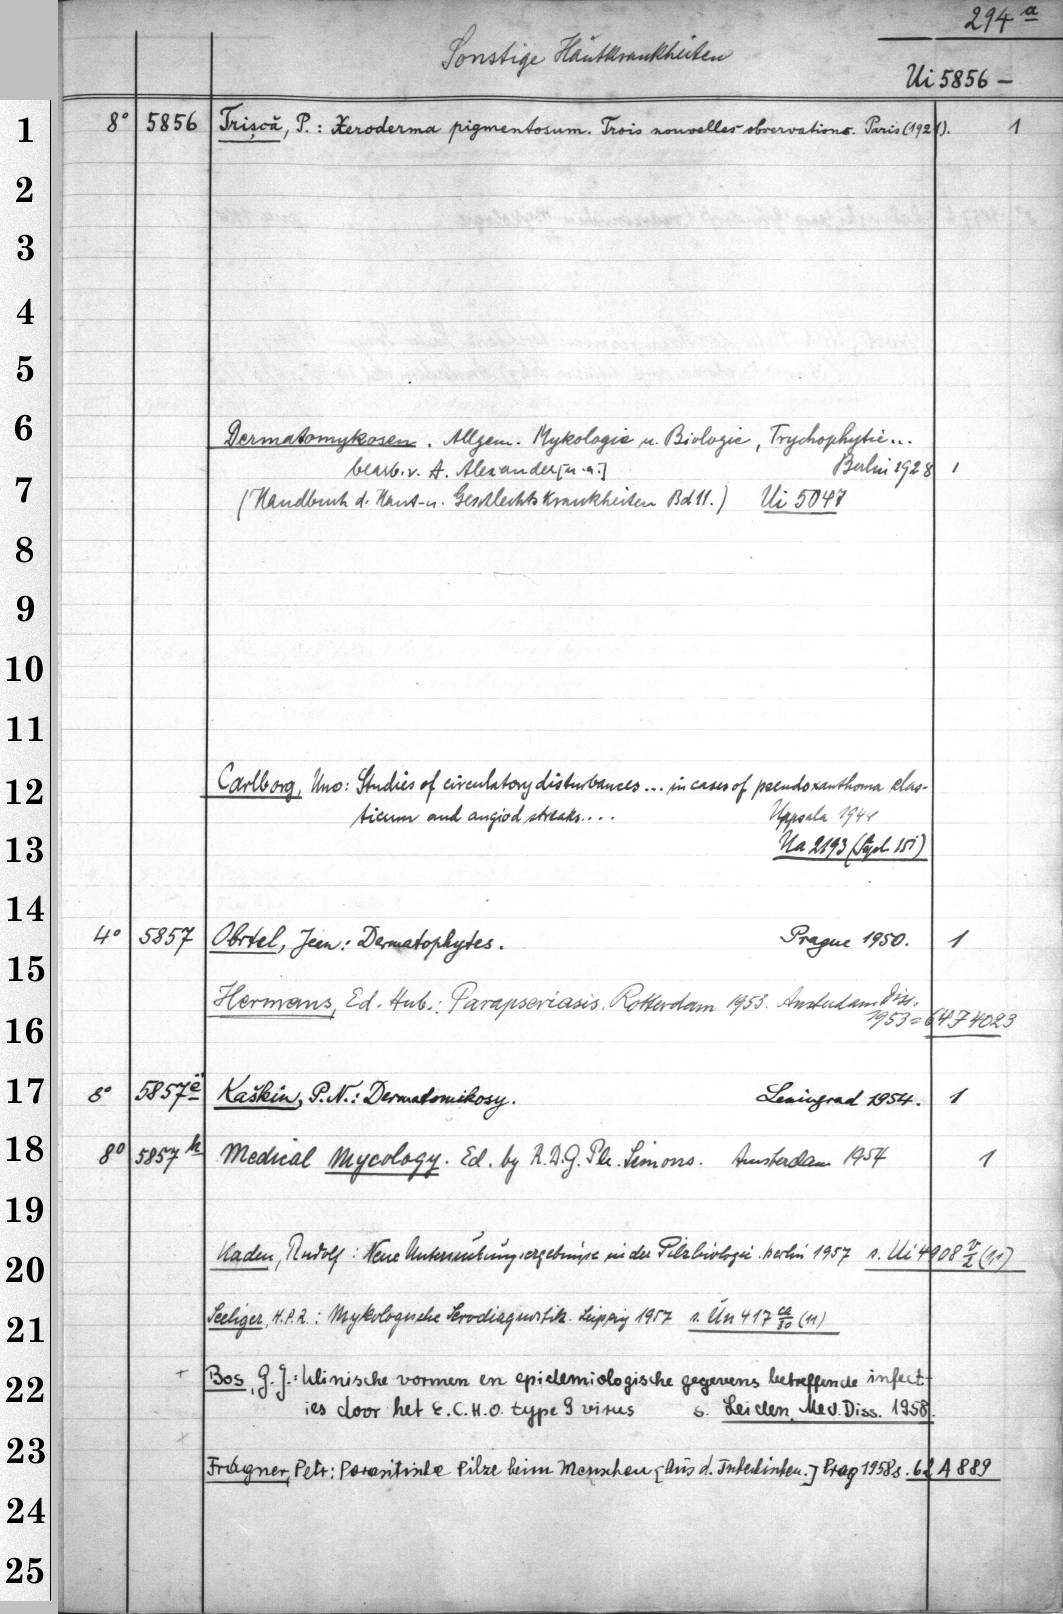 294 a
Sonstige Hautkrankheiten
Ui 5856 —
1 8° 5856 Trişcă, P.: Xeroderma pigmentosum. Trois nouvelles observations. Paris (1921). 1
2
3
4
5
6 Dermatomykosen. Allgem. Mykologie u. Biologie, Trychophytie...
bearb. v. A. Alexander [u. a.] Berlin 1928 1
7 (Handbuch d. Haut- u. Geschlechtskrankheiten Bd 11.) Ui 5047
8
9
10
11
12 Carlborg, Uno: Studies of circulatory disturbances... in cases of pseudoxanthoma elas-
ticum and angiod streaks.... Uppsala 1944
13 Ua 2193 (Suppl. 151)
14
4° 5857 Obrtel, Jean: Dermatophytes. Prague 1950. 1
15
Hermans, Ed. Hub.: Parapsoriasis. Rotterdam 1953. Amsterdam Diss.
16 1953 = 64 F 4023
17 8° 5857 e Kaškin, P. N.: Dermatomikosy. Leningrad 1954. 1
18 8° 5857 h Medical Mycology. Ed. by R. D. G. Ph. Simons. Amsterdam 1954 1
19
20 Kaden, Rudolf: Neue Untersuchungsergebnisse in der Pilzbiologie. Berlin 1957 s. Ui 4908 v/2 (11)
21 Seeliger, H.P.R.: Mykologische Serodiagnostik. Leipzig 1957 s. Un 417 ca/80 (11)
22 + Bos, G. J.: Klinische vormen en epidemiologische gegevens betreffende infect-
ies door het E.C.H.O. type 9 virus s. Leiden, Med. Diss. 1958.
23 ×
Frágner, Petr: Parasitische Pilze beim Menschen [Aus d. Tschechischen.] Prag 1958 s. 62 A 889
24
25